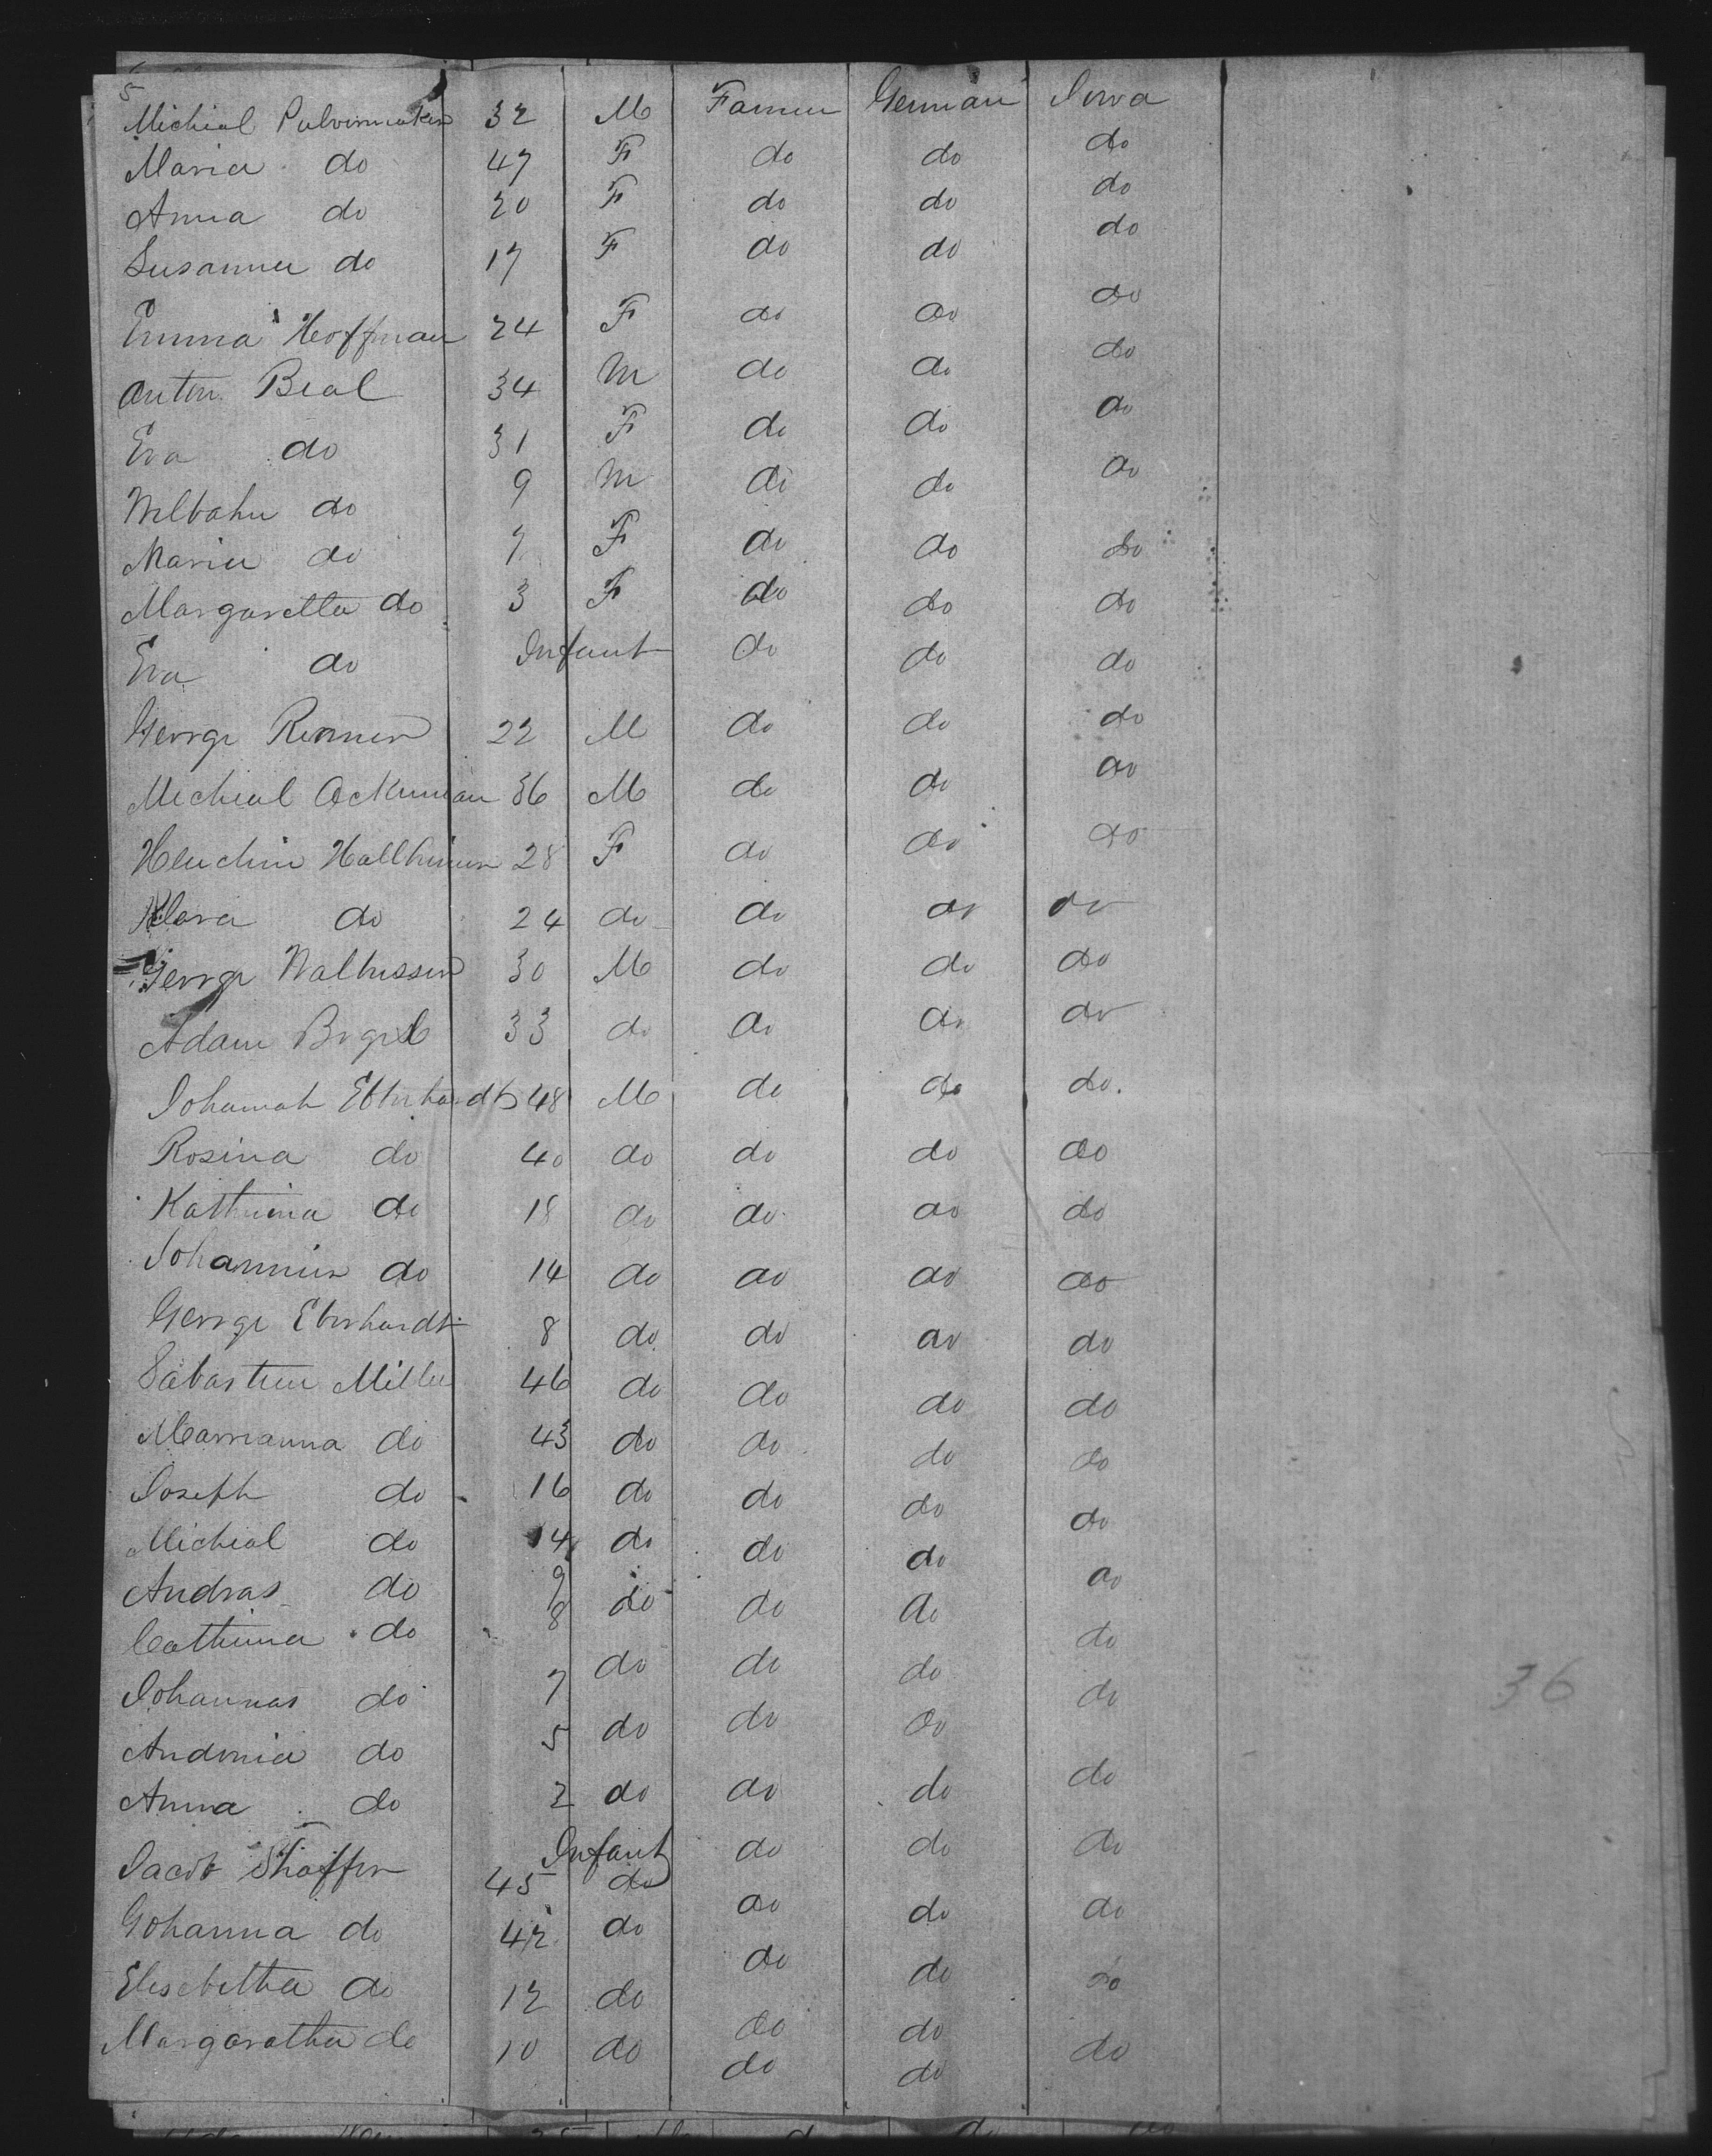 5
Michial Pulvermaker 32 M Farmer German Iowa
Maria do 47 F do do do
Anna do 20 F do do do
Susanna do 17 F do do do
Emma Hoffman 24 F do do do
Anton Beal 34 M do do do
Eva do 31 F do do do
do 9 M do do do
Maria do 7 F do do do
Margaretta do 3 F do do do
Eva do Infant do do do
George Renner 22 M do do do
Micheal Ackerman 36 M do do do
28 F do do do
Klara do 24 do do do do
George 30 M do do do
Adam 33 do do do do
Eberhardt 48 M do do do.
Rosina do 40 do do do do
Kathrina do 18 do do do do
Johannes do 14 do do do do
George Eberhardt 8 do do do do
Sabastian Miller 46 do do do do
Marrianna do 43 do do do do
Joseph do 16 do do do do
Michial do 14 do do do do
Andras do 9 do do do do
Cathrina do 8
Johannas do 7 do do do do
Andonia do 5 do do do do
Anna do 2 do do do do
Infant do do do
Jacob Shaffer 45 do do do do
Gohanna do 42 do do do do
Elisebetha do 12 do do do
Margaratha do 10 do do do do
36